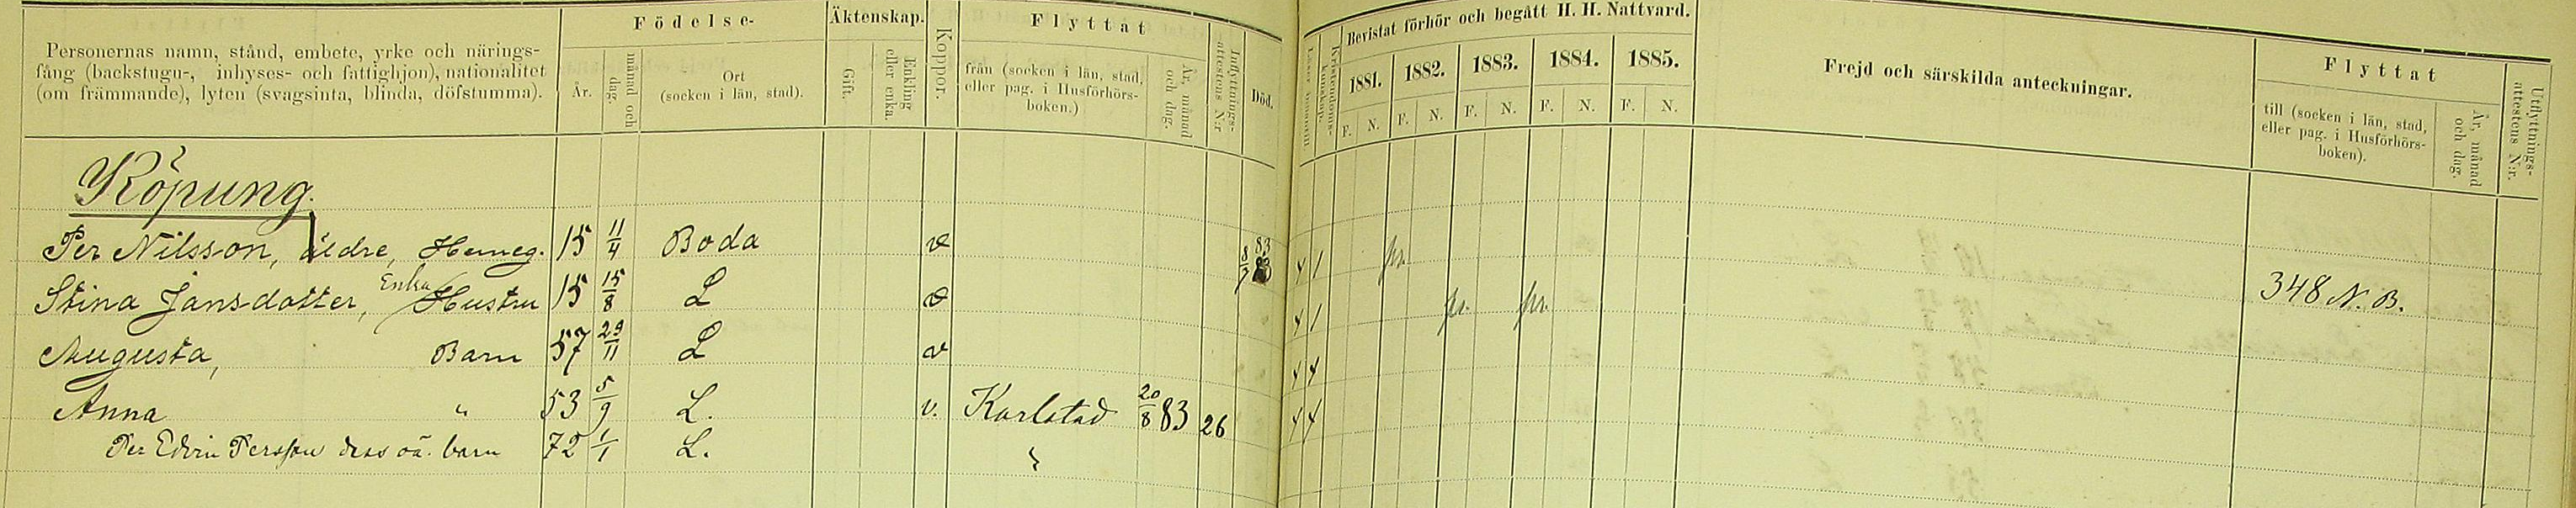 Personernas namn, stånd, embete, yrke och närings-
fång (backstugu-, inhyses- och fattighjon), nationalitet
(om främmande), lyten (svagsinta, blinda, döfstumma).
Födelse-
År.
månad och dag.
Ort
(socken i län, stad).
Äktenskap.
Gift.
Enkling eller enka.
Koppor.
Flyttat
från (socken i län, stad,
eller pag. i Husförhörs-
boken.)
År, månad och dag.
Inflyttnings-attestens N:r
Död.
Läser innantill
Kristendoms-kunskap.
Bevistat förhör och begått H. H. Nattvard.
1881. 1882. 1883. 1884. 1885.
F. N. F. N. F. N. F. N. F. N.
Frejd och särskilda anteckningar.
Flyttat
till (socken i län, stad,
eller pag. i Husförhörs-
boken).
År, månad och dag.
Utflyttnings-attestens N:r.
Köpung.
Per Nilsson, äldre, Hemeg. 15 11/4 Boda v 8/7 83 4 1 pr.
Stina Jansdotter, Enka Hustru 15 15/8 L v 4 1 pr. pr. 348 N. B.
Augusta, Barn 57 29/11 L v 4 4
Anna " 53 5/9 L. v. Karlstad 20/8 83 26 4 4
Per Edvin Persson dess oä. barn 72 1/1 L.